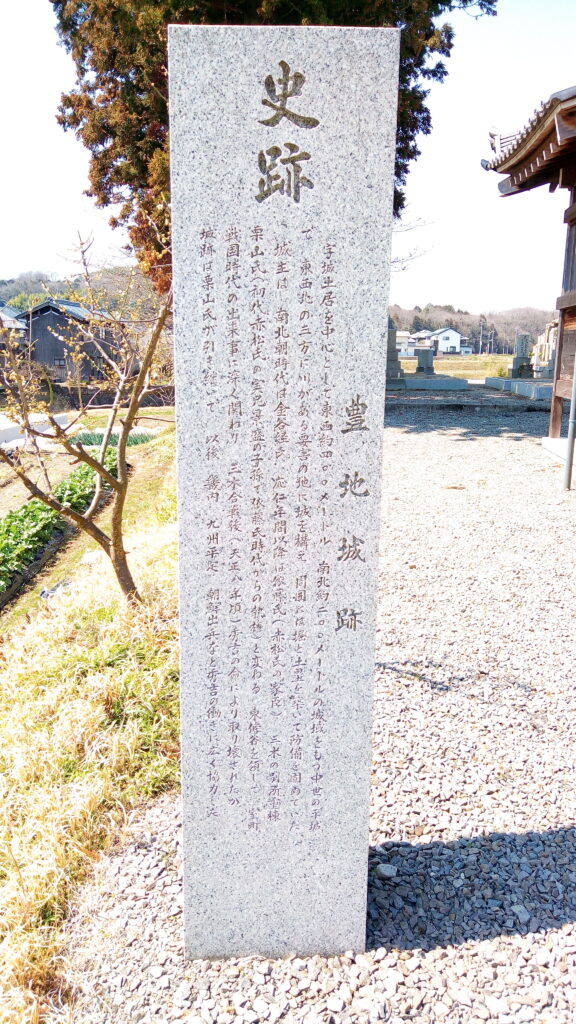 史跡
豊地城跡
字城土居を中心として東西約四〇〇メートル 南北約二〇〇メートルの城域をもつ中世の平城
で 東西北の三方に川がある要害の地に城を構え 周囲には堀と土塁を築いて防備を固めていた
城主は 南北朝時代は金谷経氏 応仁年間以降は依藤氏(赤松氏の家臣) 三木の別所重棟
栗山氏(初代赤松氏の 景盛の子孫で依藤氏時代からの )と変わる 東條谷を領して 室町
戦国時代の出来事に深く関わり 三木合戦後(天正八年頃)秀吉の命により取り壊されたが
城跡は栗山氏が引き継いで 以後 畿内 九州平定 朝鮮出兵など秀吉の働きに広く協力した